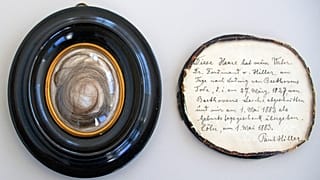 Diese Haare hat mein Vater
Dr. Ferdinand v. Hiller am
Tage nach Ludwig van Beethovens
Tode, d. i. am 27. März 1827 von
Beethovens Leiche abgeschnitten
und mir am 1. Mai 1883 als
Geburtstagsgeschenk übergeben.
Cöln, am 1. Mai 1883.
Paul Hiller